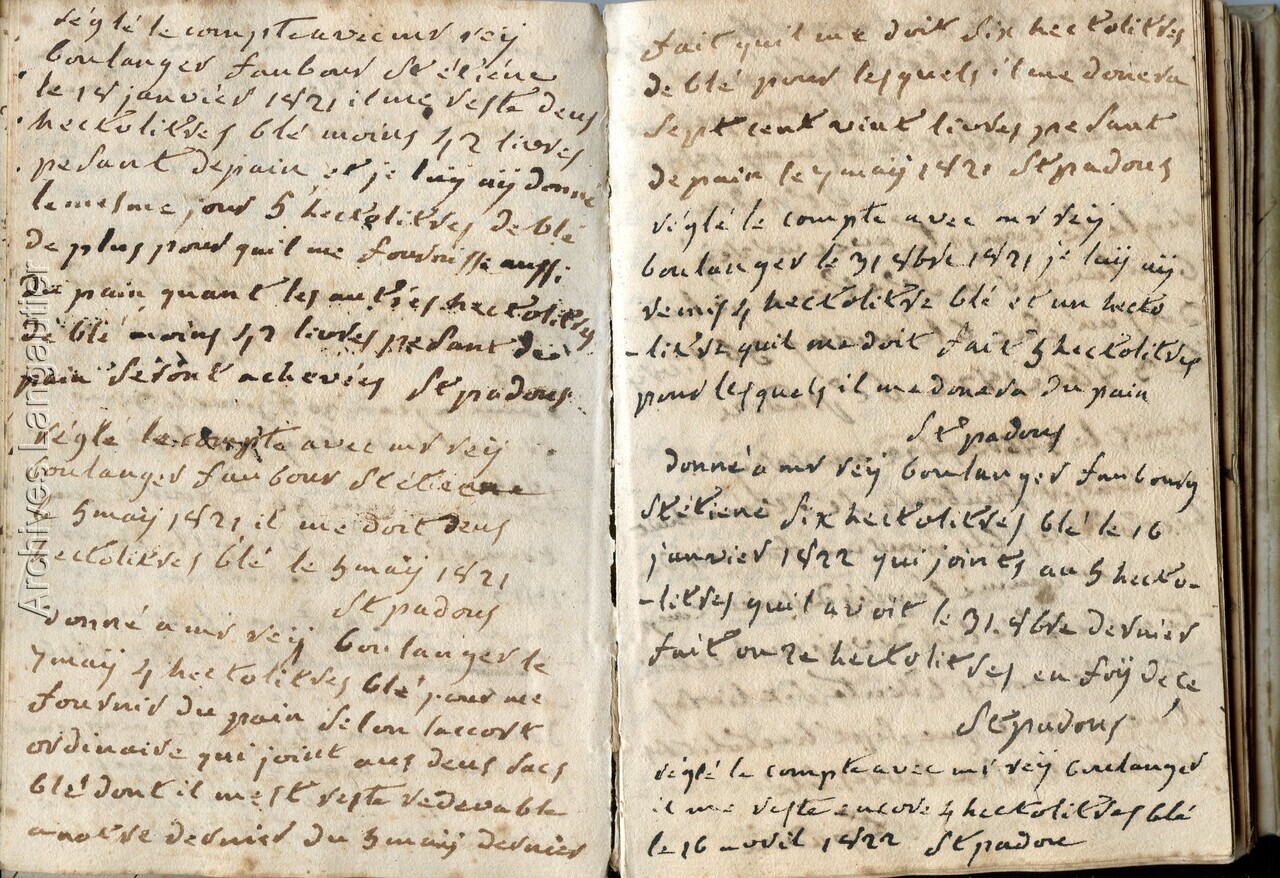 réglé le compte avec mr reÿ
boulanger faubour St étiéne
le 18 janvier 1821 il me reste deus
hectolitres blé moins 42 livres
pesant de pain et je luÿ aÿ donné
le mesme jour 5 hectolitres de blé
de plus pour quil me fournisse aussi
du pain quant les autres hectolitres
de blé moins 42 livres pesant de
pain seront achevées St padous
réglé le compte avec mr reÿ
boulanger faubour St étiene
le 5 maÿ 1821 il me doit deus
hectolitres blé le 5 maÿ 1821
St padous
donné a mr reÿ boulanger le
7 maÿ 4 hectolitres blé pour me
fournir du pain selon laccort
ordinaire qui joint aus deus sacs
blé dont il mest reste redevable
a notre dernier du 5 maÿ dernier
fait quil me doit six hectolitres
de blé pour lesquels il me donera
sept cent vint livres pesant
de pain le 7 maÿ 1821 St padous
réglé le compte avec mr reÿ
boulanger le 31 8bre 1821 je luÿ aÿ
remis 4 hectolitre blé et un hecto
-litre quil me doit fait 5 hectolitres
pour lesquels il me donera du pain
St padous
donné a mr reÿ boulanger faubourg
St étiene six hectolitres blé le 16
janvier 1822 qui joints au 5 hecto-
-litres quil avoit le 31. 8bre dernier
fait onze hectolitres en foÿ de ce
St padous
réglé le compte avec mr reÿ boulanger
il me reste encore 4 hectolitres blé
le 16 avril 1822 St padous
Archives Langlatier